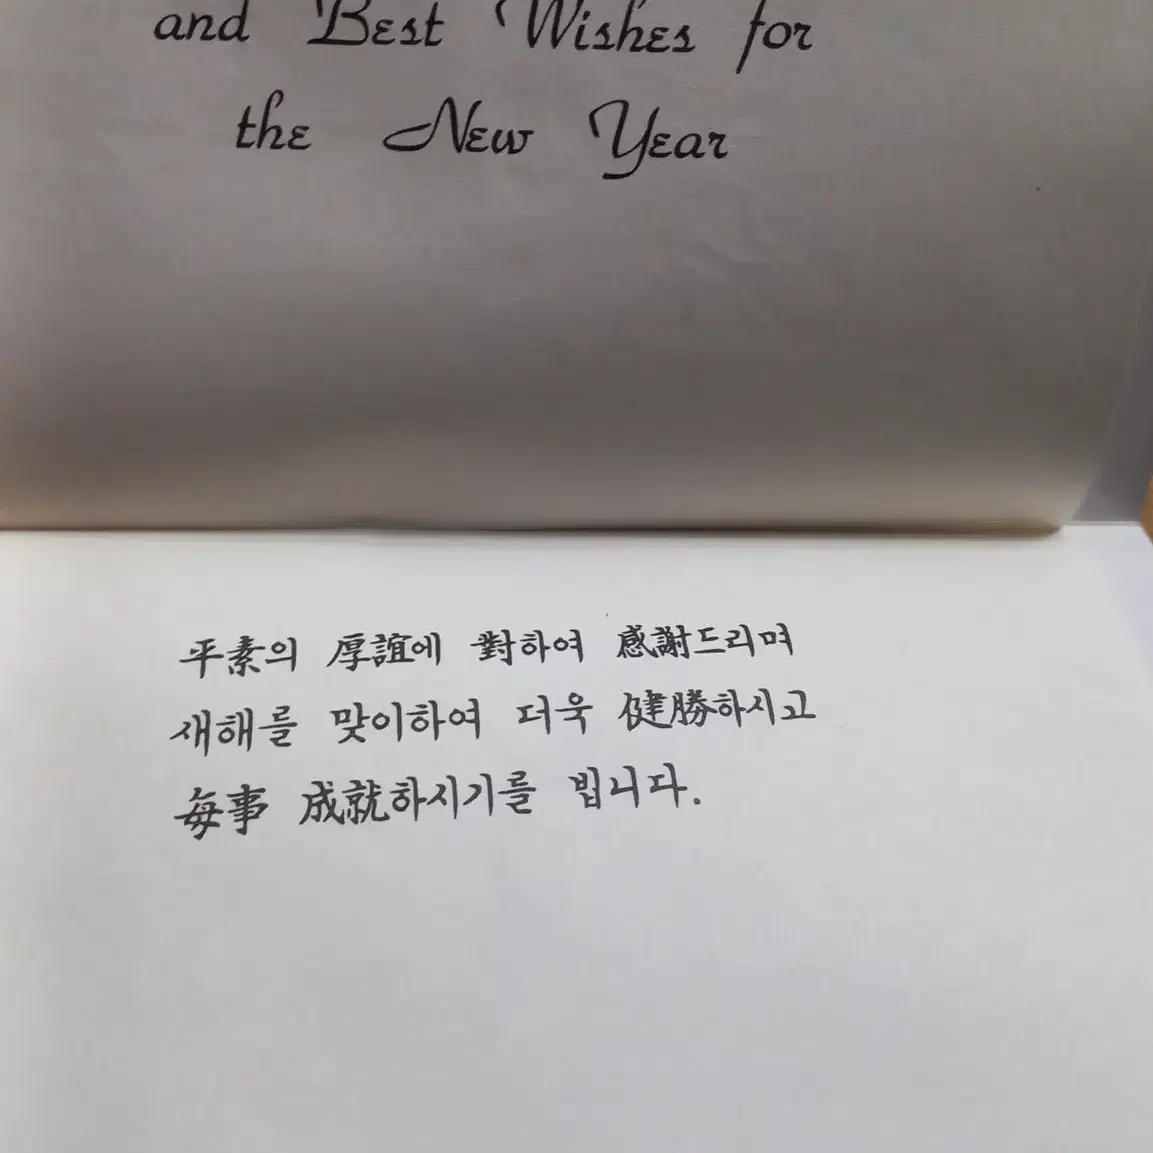 and Best Wishes for
the New Year
平素의 厚誼에 對하여 感謝드리며
새해를 맞이하여 더욱 健勝하시고
每事 成就하시기를 빕니다.